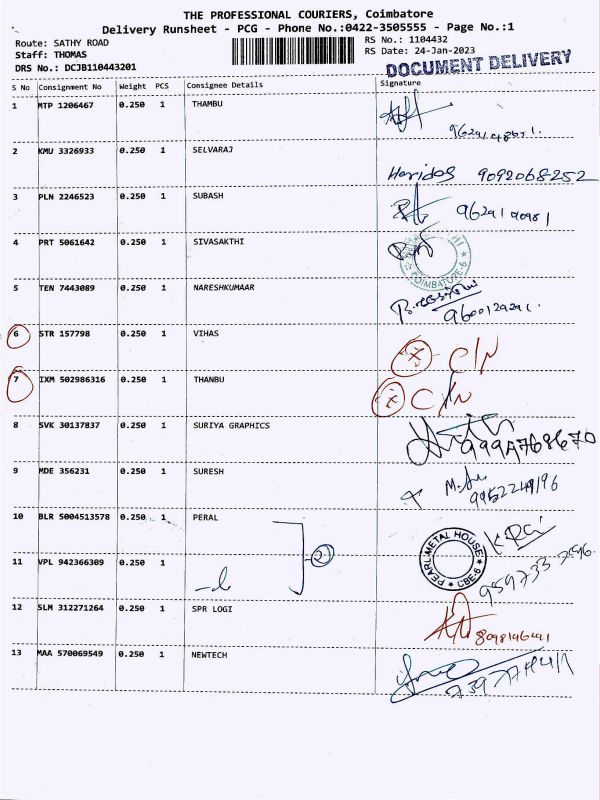 THE PROFESSIONAL COURIERS, Coimbatore
Delivery Runsheet - PCG - Phone No.:0422-3505555 - Page No.:1
Route: SATHY ROAD
RS No.: 1104432
Staff: THOMAS
RS Date: 24-Jan-2023
DRS No.: DCJB110443201
DOCUMENT DELIVERY
S No Consignment No Weight PCS Consignee Details Signature
1 MTP 1206467 0.250 1 THAMBU
2 KMU 3326933 0.250 1 SELVARAJ Haridos 9092068252
3 PLN 2246523 0.250 1 SUBASH
4 PRT 5061642 0.250 1 SIVASAKTHI
COIMBATORE-6
5 TEN 7443089 0.250 1 NARESHKUMAAR
6 STR 157798 0.250 1 VIHAS C/N
7 IXM 502986316 0.250 1 THANBU C/N
8 SVK 30137837 0.250 1 SURIYA GRAPHICS
9 MDE 356231 0.250 1 SURESH
10 BLR 5004513578 0.250 1 PERAL
PEARL METAL HOUSE CBE-6
11 VPL 942366309 0.250 1
12 SLM 312271264 0.250 1 SPR LOGI
13 MAA 570069549 0.250 1 NEWTECH